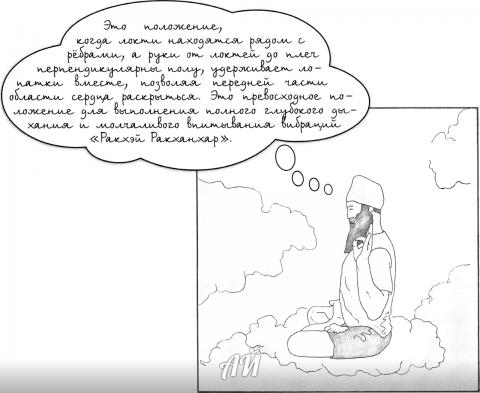 Это положение,
когда локти находятся рядом с
рёбрами, а руки от локтей до плеч
перпендикулярны полу, удерживает ло-
патки вместе, позволяя передней части
области сердца раскрыться. Это превосходное по-
ложение для выполнения полного глубокого ды-
хания и молчаливого впитывания вибраций
«Ракхэй Ракханхар».
АЙ